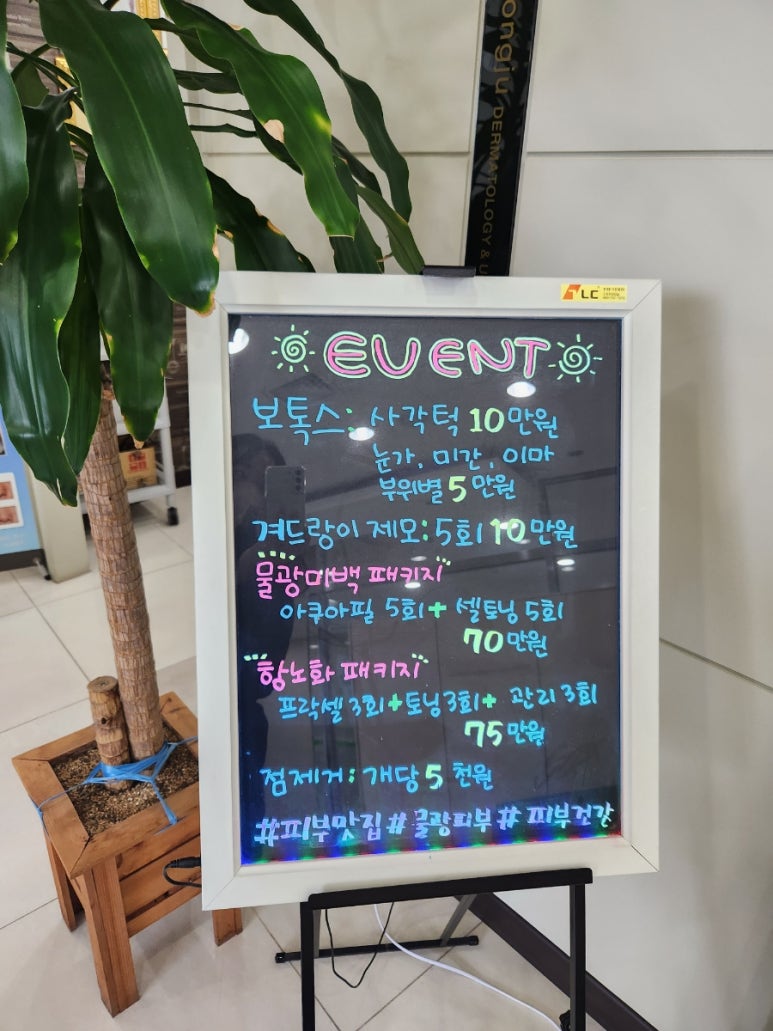 ongju DERMATOLOGY & U
TLC
EVENT
보톡스: 사각턱 10만원
눈가, 미간, 이마
부위별 5만원
겨드랑이 제모: 5회 10만원
물광미백 패키지
아쿠아필 5회 + 셀토닝 5회
70만원
항노화 패키지
프락셀 3회 + 토닝 3회 + 관리 3회
75만원
점제거: 개당 5천원
#피부맛집 #물광피부 #피부건강